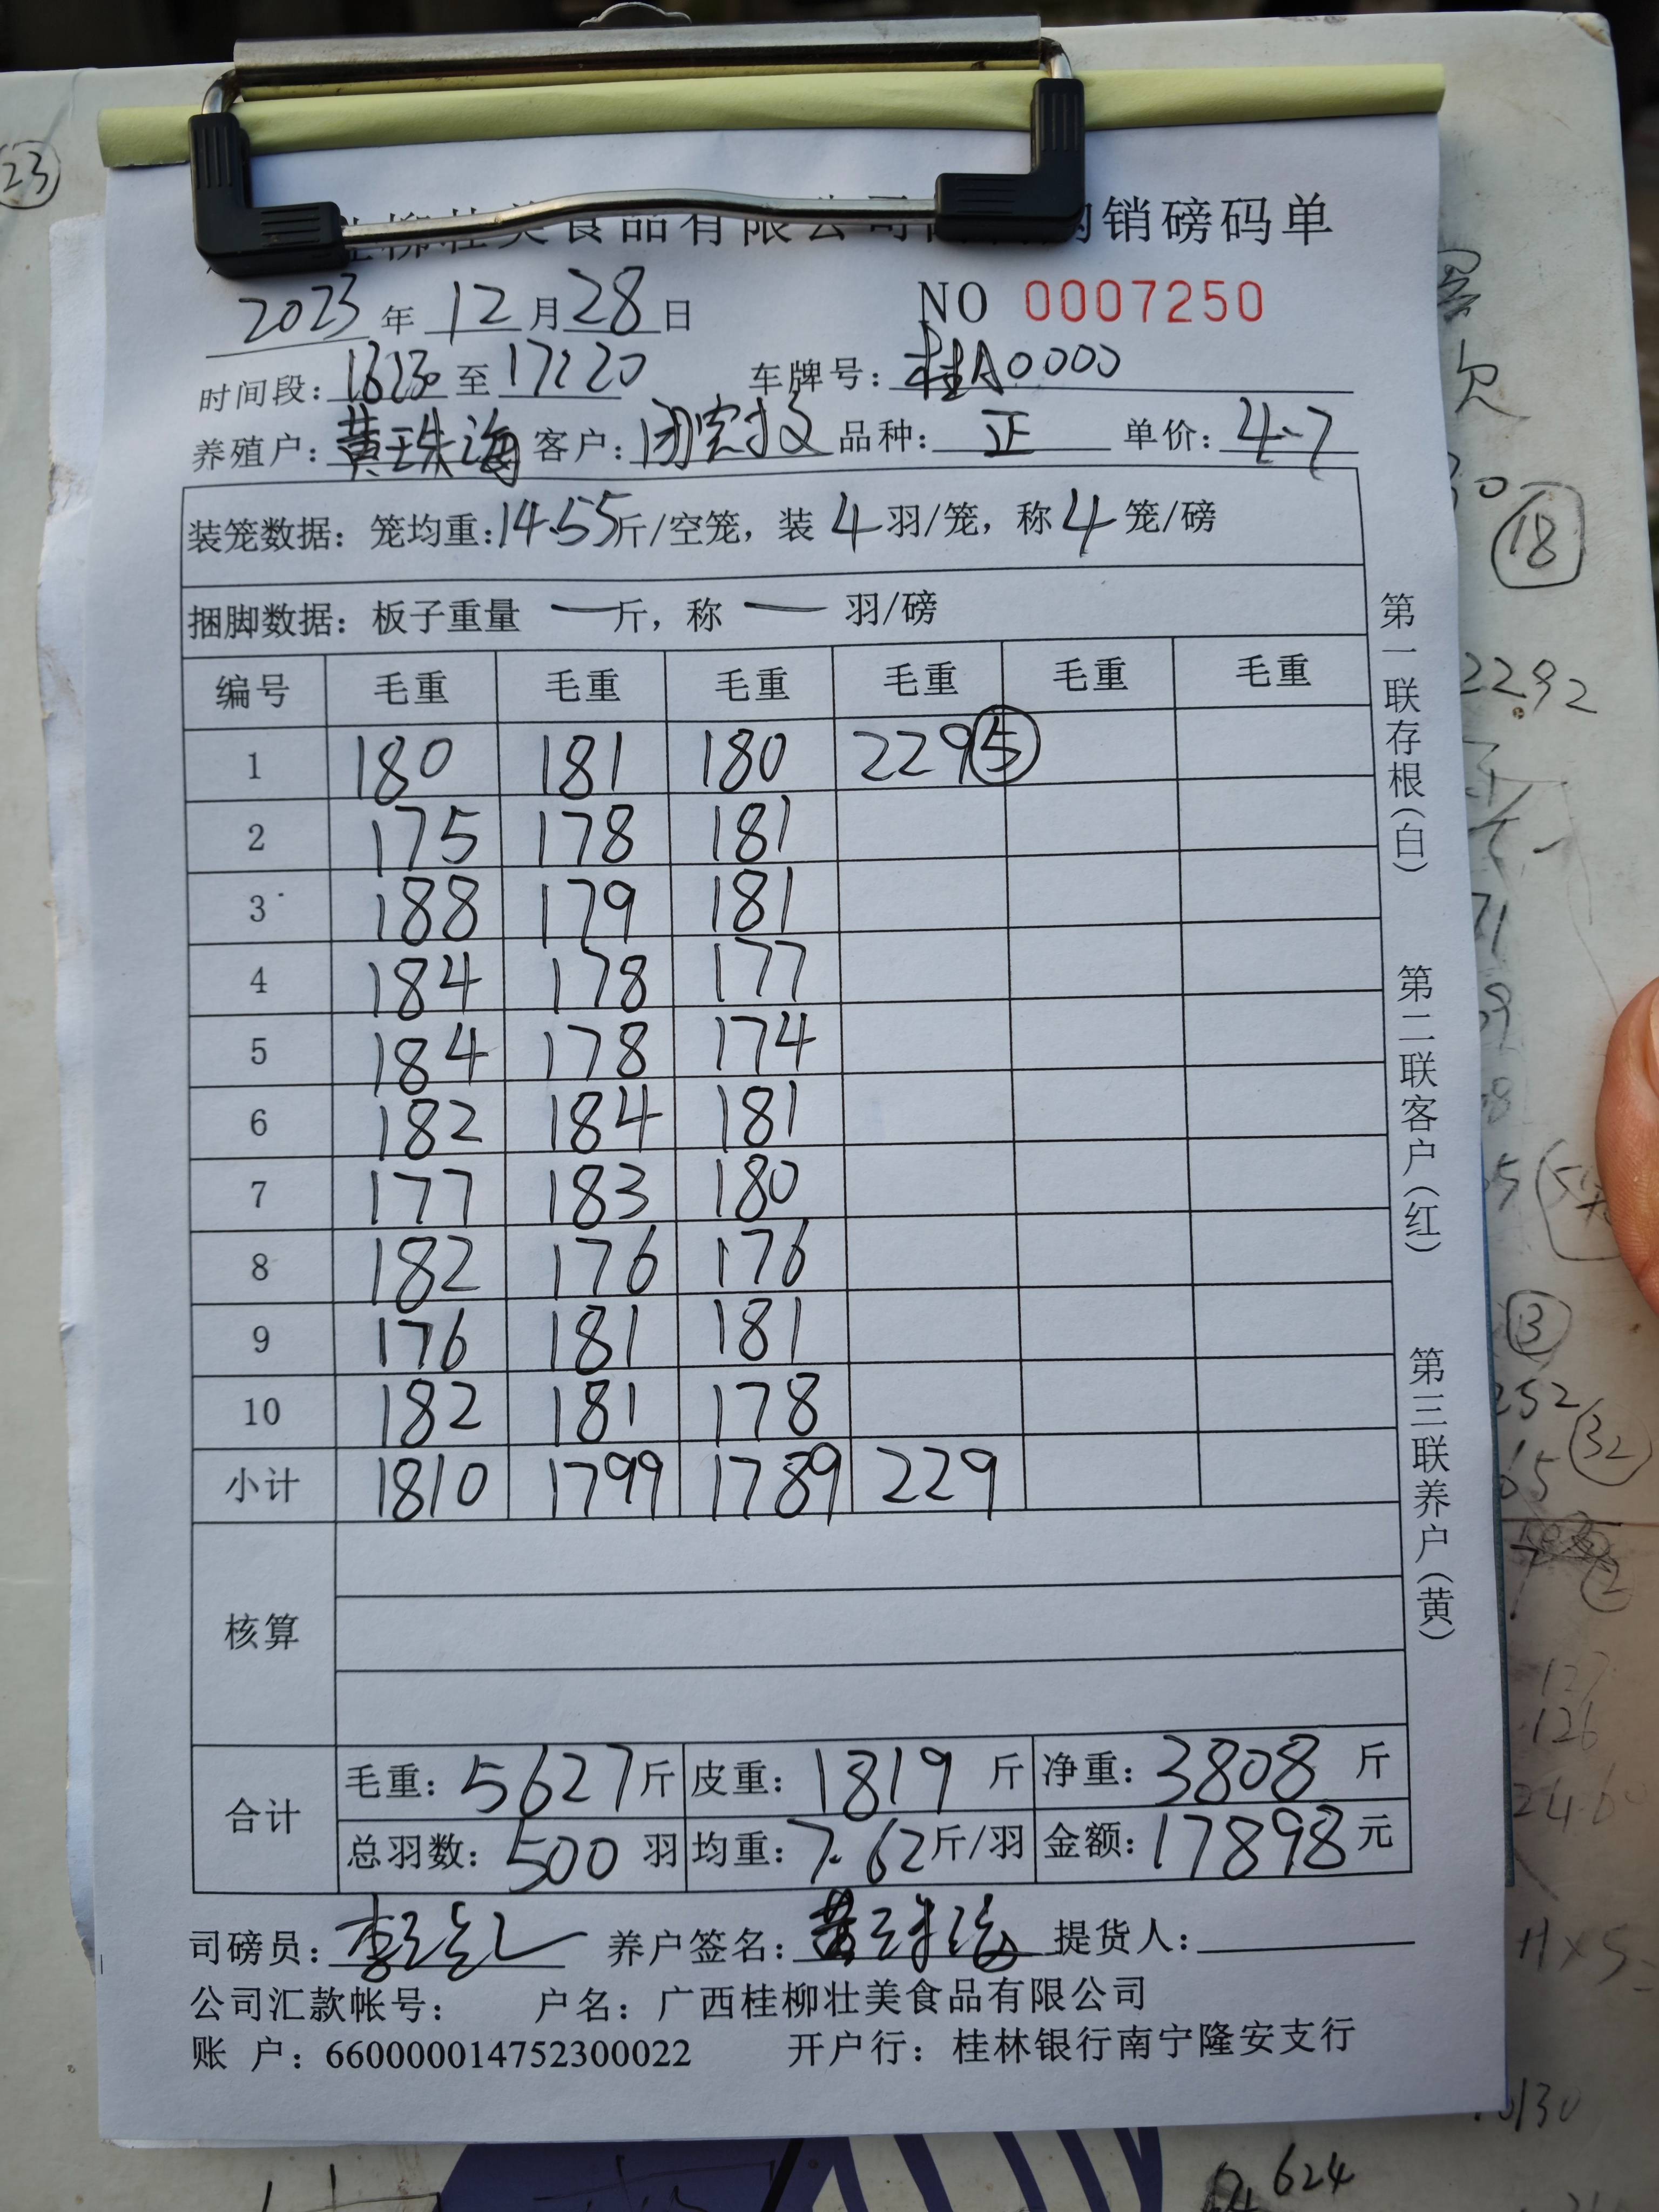 柳壮美食品有限公司 销磅码单
2023年12月28日 NO 0007250
时间段：16:30至17:20 车牌号：桂A0000
养殖户：黄珠海 客户： 品种：正 单价：4.7
装笼数据：笼均重：14.55斤/空笼，装4羽/笼，称4笼/磅
捆脚数据：板子重量 — 斤，称 — 羽/磅
编号 毛重 毛重 毛重 毛重 毛重 毛重
1 180 181 180 229⑤
2 175 178 181
3 188 179 181
4 184 178 177
5 184 178 174
6 182 184 181
7 177 183 180
8 182 176 176
9 176 181 181
10 182 181 178
小计 1810 1799 1789 229
核算
合计 毛重：5627斤 皮重：1819斤 净重：3808斤
总羽数：500羽 均重：7.62斤/羽 金额：17898元
司磅员： 养户签名：黄珠海 提货人：
公司汇款帐号： 户名：广西桂柳壮美食品有限公司
账 户：660000014752300022 开户行：桂林银行南宁隆安支行
第一联存根（白） 第二联客户（红） 第三联养户（黄）
23
18
2292
3
252
32
126
624